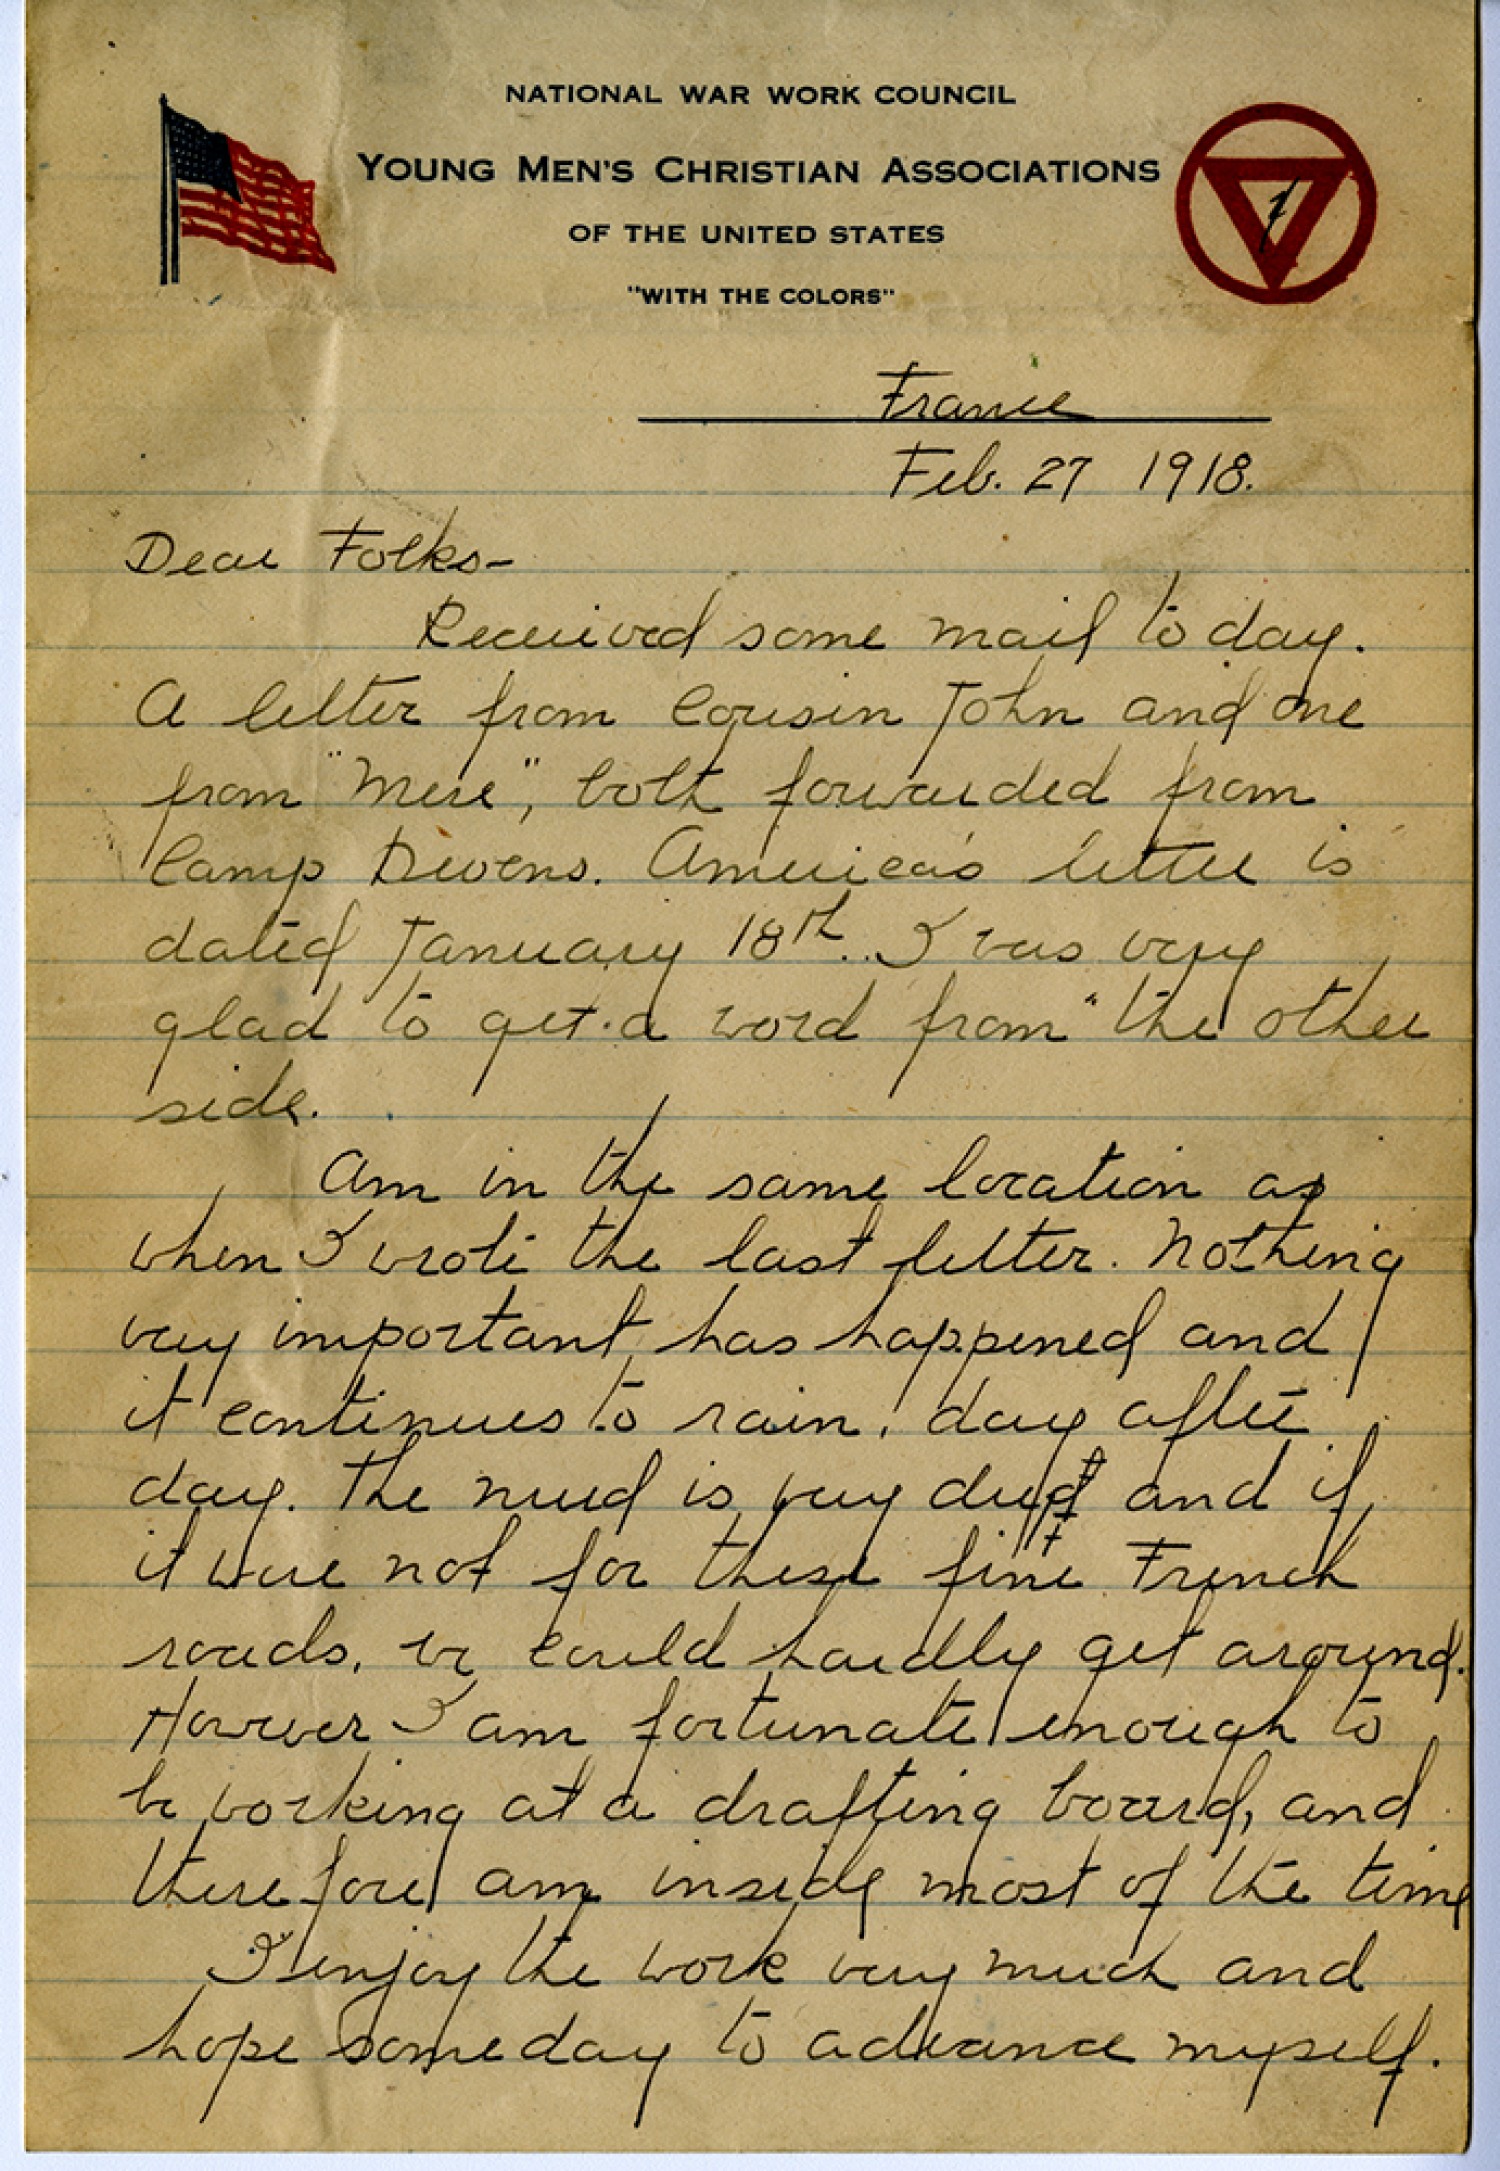 NATIONAL WAR WORK COUNCIL
YOUNG MEN'S CHRISTIAN ASSOCIATIONS
OF THE UNITED STATES
"WITH THE COLORS"
France
Feb. 27 1918.
Dear Folks-
Received some mail to day.
A letter from Cousin John and one
from "Mere", both forwarded from
Camp Devens. America's letter is
dated January 18th. I was very
glad to get a word from "the other
side.
Am in the same location as
when I wrote the last letter. Nothing
very important has happened and
it continues to rain, day after
day. The mud is very deep and if
it were not for these fine French
roads, we could hardly get around.
However I am fortunate enough to
be working at a drafting board, and
therefore am inside most of the time
I enjoy the work very much and
hope someday to advance myself.